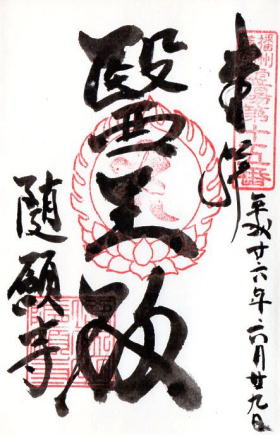 奉拝
播州薬師霊場第十五番
平成廿六年六月廿九日
醫王殿
随願寺